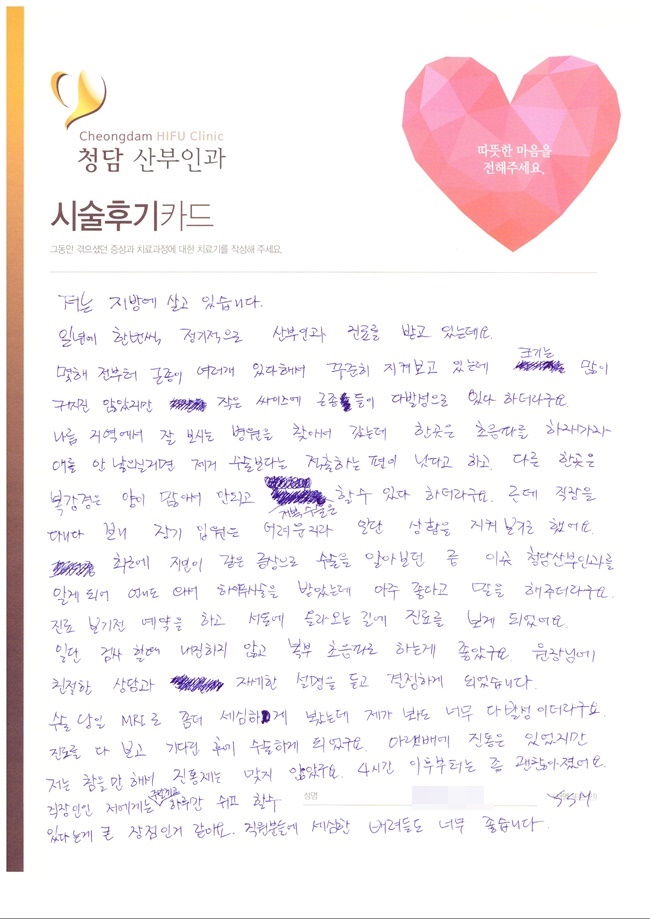 Cheongdam HIFU Clinic
청담 산부인과
따뜻한 마음을
전해주세요.
시술후기카드
그동안 겪으셨던 증상과 치료과정에 대한 치료기를 작성해 주세요.
저는 지방에 살고 있습니다.
일년에 한번씩 정기적으로 산부인과 진료를 받고 있는데요.
몇해 전부터 근종이 여러개 있다해서 꾸준히 지켜보고 있는데 크기는 많이
커지진 않았지만 작은 싸이즈에 근종들이 다발성으로 있다 하더라구요.
나름 지역에서 잘 보시는 병원을 찾아서 갔는데 한곳은 초음파를 하자마자
애를 안 낳으실거면 제거 수술보다는 적출하는 편이 낫다고 하고. 다른 한곳은
복강경은 양이 많아서 안되고 개복수술은 할수 있다 하더라구요. 근데 직장을
다니다 보니 장기 입원은 어려운지라 일단 상황을 지켜 보기로 했어요.
최근에 지인이 같은 증상으로 수술을 알아보던 중 이곳 청담산부인과를
알게 되어 하이푸시술을 받았는데 아주 좋다고 말을 해주더라구요.
진료 보기전 예약을 하고 서울에 올라오는 길에 진료를 보게 되었어요.
일단 검사 할때 내진하지 않고 복부 초음파로 하는게 좋았구요. 원장님에
친절한 상담과 자세한 설명을 듣고 결정하게 되었습니다.
수술 당일 MRI로 좀더 세심하게 봤는데 제가 봐도 너무 다발성이더라구요.
진료를 다 보고 기다린 후에 수술하게 되었구요. 아랫배에 진통은 있었지만
저는 참을만 해서 진통제는 맞지 않았구요. 4시간 이후부터는 좀 괜찮아졌어요.
직장인인 저에게는 하루만 쉬고 할수
성명
있다는게 큰 장점인거 같아요. 직원분들에 세심한 배려들도 너무 좋습니다.